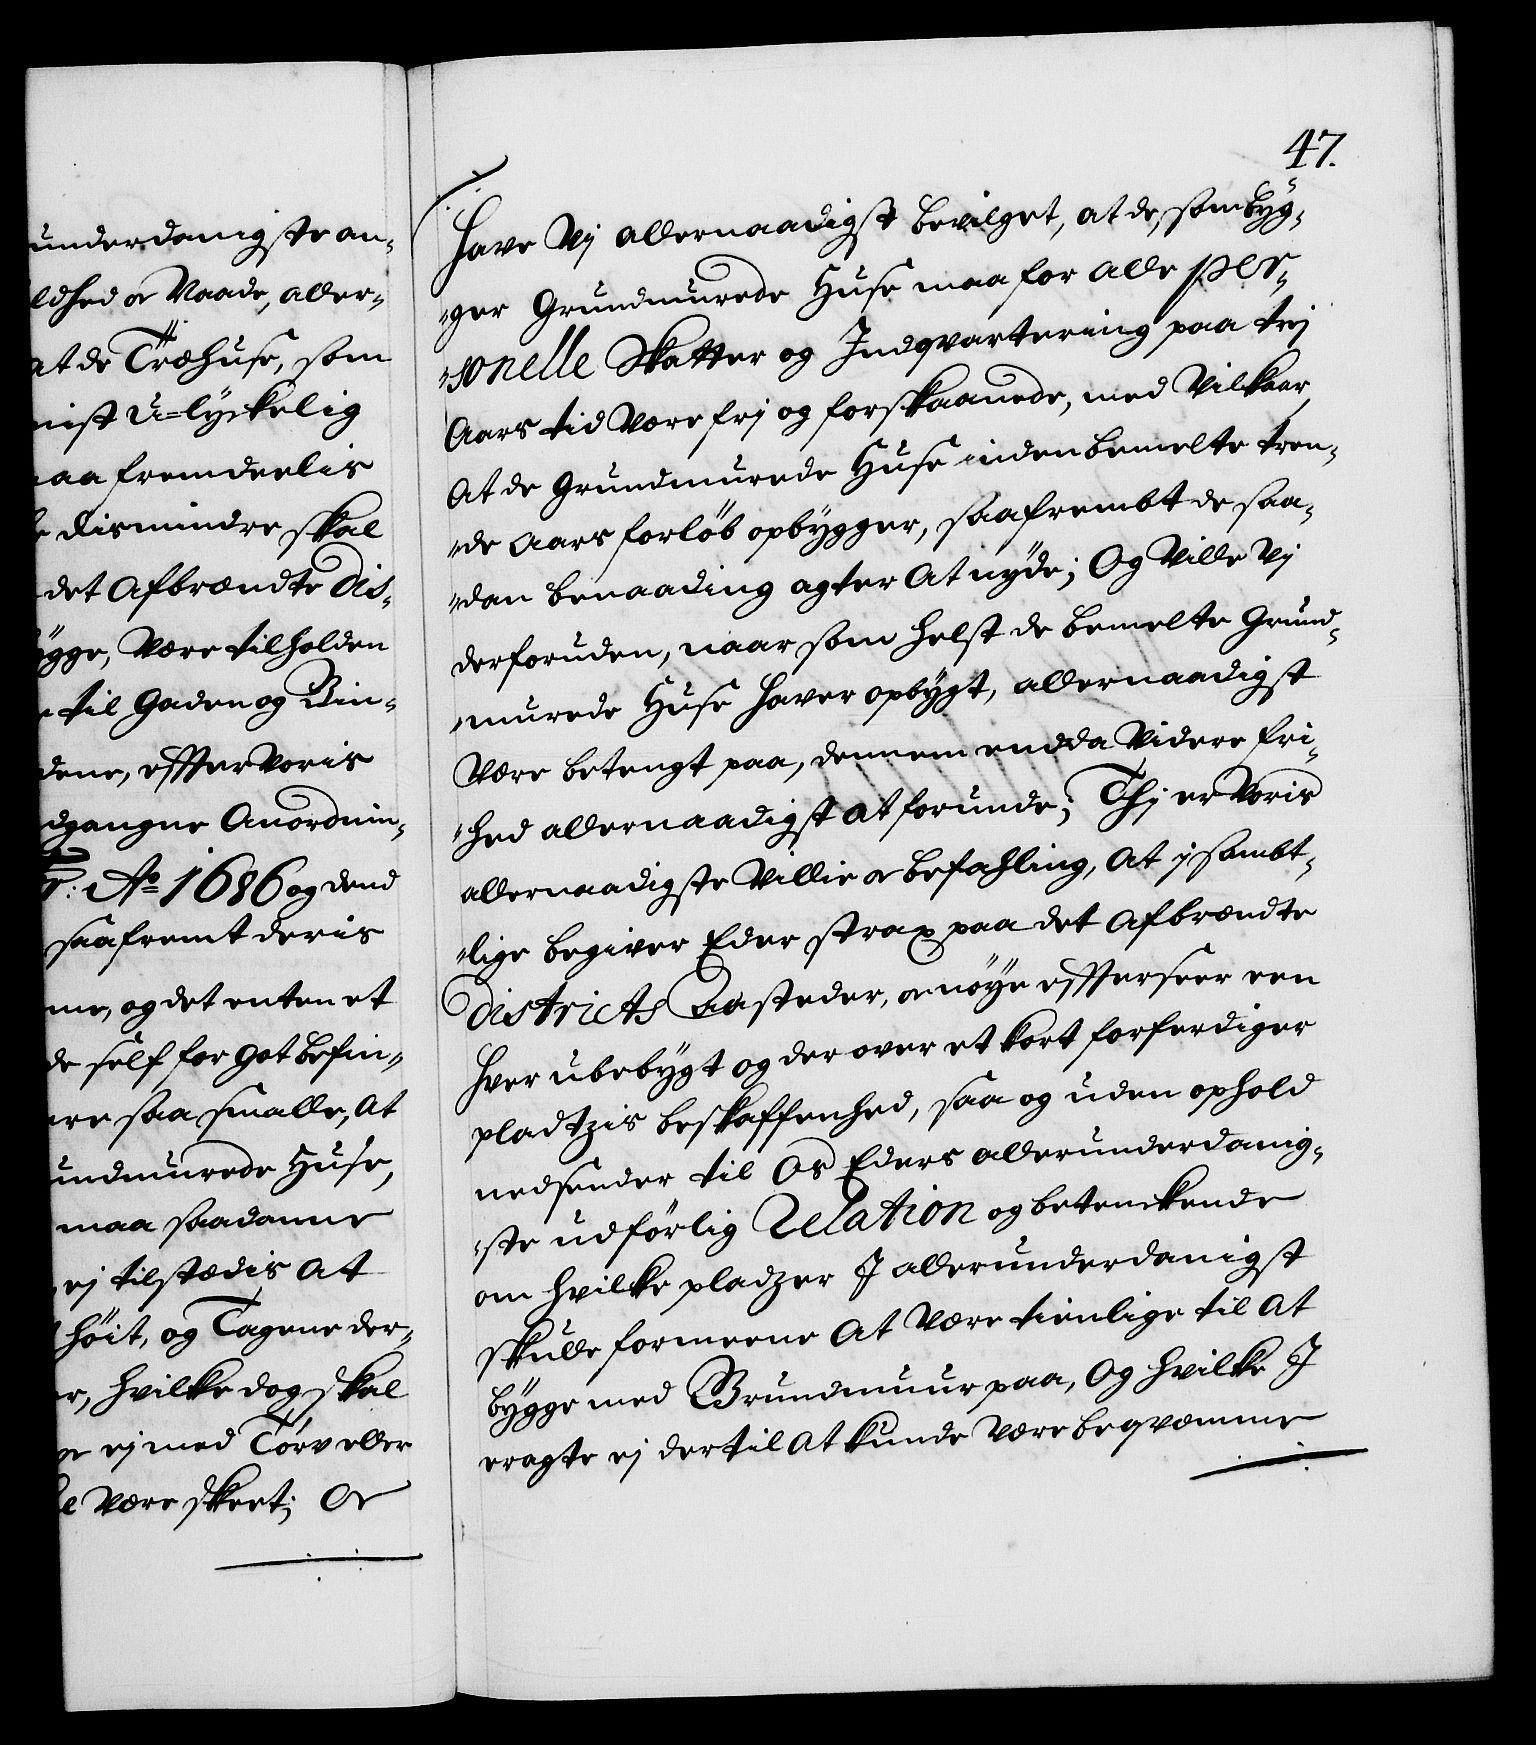 underdanigste an-
ldhed or Vaade, aller-
at de Træhuse, som
nist u-lyckelig
aa fremdeelis
dismindre skal
det Afbrændte Dis-
ygge, Være tilholden
til Gaden og Bin-
dene, effter Voris
dgangne Anordnin-
r: Ao 1686 og dend
saafremt deris
me, og det enten et
de self for Got befin-
re saa smalle, At
undmurede Huse,
maa saadanne
ej tilstædis At
høit, og Tagene der-
r, hvilke dog skal
ej med Törv eller
Være skeet; Or
47.
Have Vj allernaadigst bevilget, at de, som byg-
ger Grundmurede Huse maa for alle per-
sonelle Skatter og Indqvartering paa trj
Aars tid Være frj og forskaanede, med Vilkaar
At de Grundmurede Huse inden bemelte tren-
de Aars forløb opbygger, saafrembt de saa-
dan benaading agter At nyde; Og Ville Vj
derforuden, naar som helst de bemelte Grund-
murede Huse haver opbygt, allernaadigst
Være betengt paa, dennem endda Videre fri-
hed allernaadigst at forunde; Thj er Voris
allernaadigste Villie or Befahling, At j sambt-
lige begiver Eder strax paa det Afbrændte
Districts Aasteder, or nöye effterseer een
hver ubebygt og der over et kort forferdiger
pladtzis beskaffenhed, saa og uden ophold
nedsender til Os Eders allerunderdanig-
ste udförlig Relation og betenckende
om hvilke pladzer I allerunderdanigst
skulle formeene At Være tienlige til At
bygge med Grundmuur paa, Og hvilke I
eragte ej dertil At kunde Være beqvemme